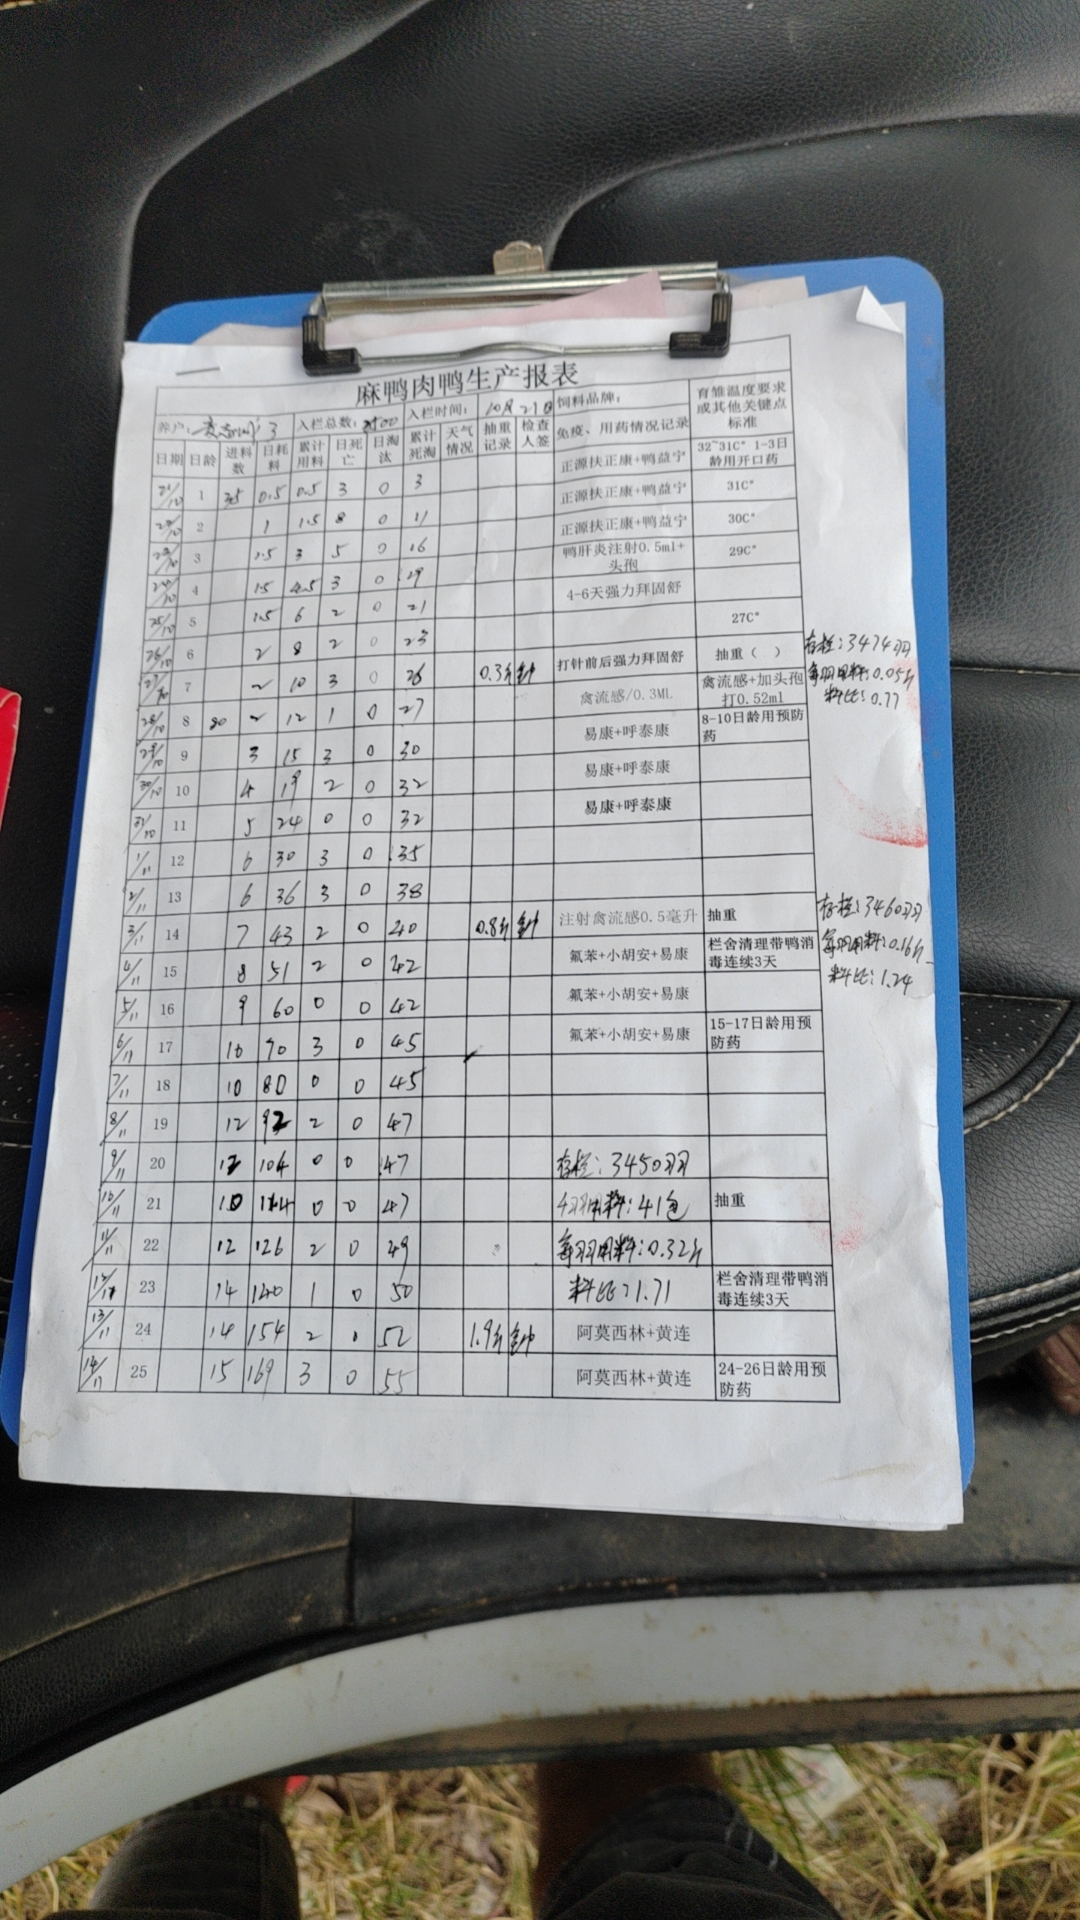 麻鸭肉鸭生产报表
养户: 3 入栏总数: 3500 入栏时间: 10月21日 饲料品牌: 育雏温度要求或其他关键点标准
日期 日龄 进料数 日耗料 累计用料 日死亡 日淘汰 累计死淘 天气情况 抽重记录 检查人签 免疫、用药情况记录
21/10 1 35 0.5 0.5 3 0 3 正源扶正康+鸭益宁 32~31C° 1-3日龄用开口药
22/10 2 1 1.5 8 0 11 正源扶正康+鸭益宁 31C°
23/10 3 1.5 3 5 0 16 正源扶正康+鸭益宁 30C°
24/10 4 1.5 4.5 3 0 19 鸭肝炎注射0.5ml+头孢 29C°
25/10 5 1.5 6 2 0 21 4-6天强力拜固舒
26/10 6 2 8 2 0 23 27C°
27/10 7 2 10 3 0 26 0.3斤 打针前后强力拜固舒 抽重（ ）
存栏:3474羽
每羽用料:0.05斤
料比:0.77
28/10 8 80 2 12 1 0 27 禽流感/0.3ML 禽流感+加头孢打0.52ml
29/10 9 3 15 3 0 30 易康+呼泰康 8-10日龄用预防药
30/10 10 4 19 2 0 32 易康+呼泰康
31/10 11 5 24 0 0 32 易康+呼泰康
1/11 12 6 30 3 0 35
2/11 13 6 36 3 0 38
3/11 14 7 43 2 0 40 0.8斤 注射禽流感0.5毫升 抽重
存栏:3460羽
每羽用料:0.16斤
料比:1.24
4/11 15 8 51 2 0 42 氟苯+小胡安+易康 栏舍清理带鸭消毒连续3天
5/11 16 9 60 0 0 42 氟苯+小胡安+易康
6/11 17 10 70 3 0 45 氟苯+小胡安+易康 15-17日龄用预防药
7/11 18 10 80 0 0 45
8/11 19 12 92 2 0 47
9/11 20 12 104 0 0 47 存栏:3450羽
10/11 21 10 114 0 0 47 用料:41包 抽重
11/11 22 12 126 2 0 49 每羽用料:0.32斤
12/11 23 14 140 1 0 50 料比:1.71 栏舍清理带鸭消毒连续3天
13/11 24 14 154 2 0 52 1.9斤 阿莫西林+黄连
14/11 25 15 169 3 0 55 阿莫西林+黄连 24-26日龄用预防药